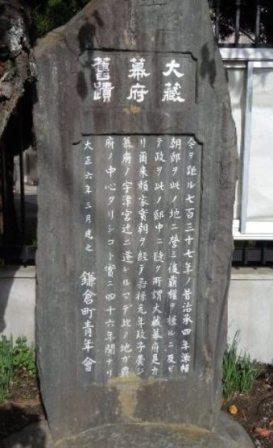 大藏
幕府
舊蹟
今ヲ距ル七百三十七年ノ昔治承四年源頼
朝邸ヲ此ノ地ニ營ミ後覇權ヲ握ルニ及ビ
テ政ヲ此ノ邸中ニ聽ク所謂大藏幕府是ナ
リ爾来頼家實朝ヲ經テ嘉禄元年政子薨ジ
幕府ノ宇津宮辻ニ遷レルマデ此ノ地ガ覇
府ノ中心タリシコト實ニ四十六年間ナリ
大正六年三月建之 鎌倉町青年會